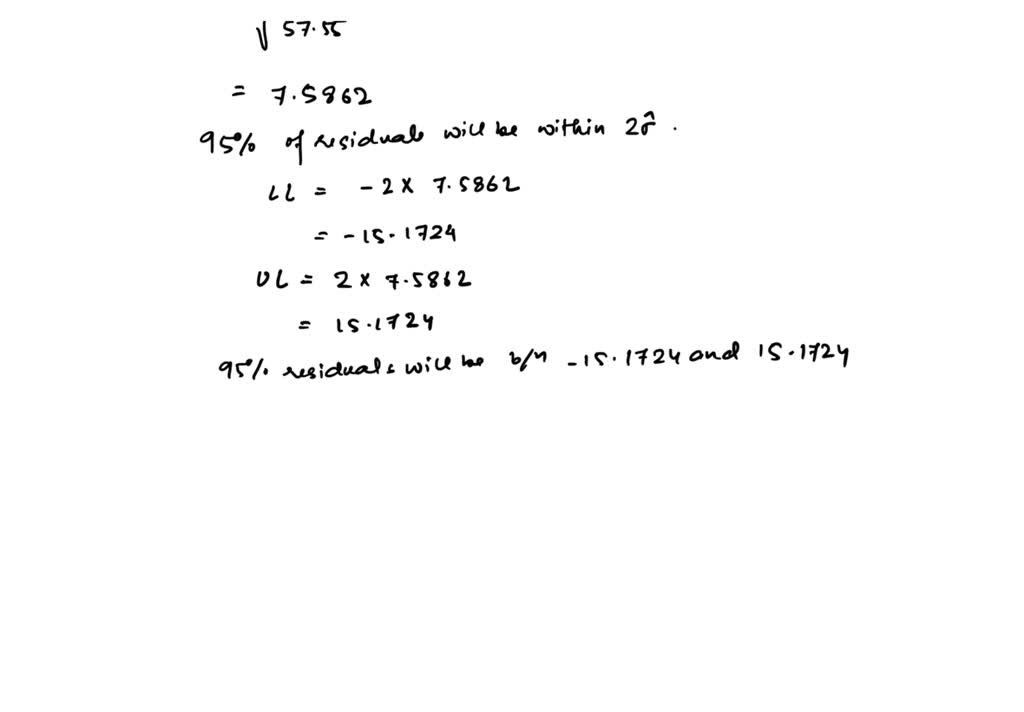 √ 57.55
= 7.5862
95% of residuals will be within 2σ̂ .
LL = - 2 x 7.5862
= - 15.1724
UL = 2 x 7.5862
= 15.1724
95% residuals will be b/n - 15.1724 and 15.1724